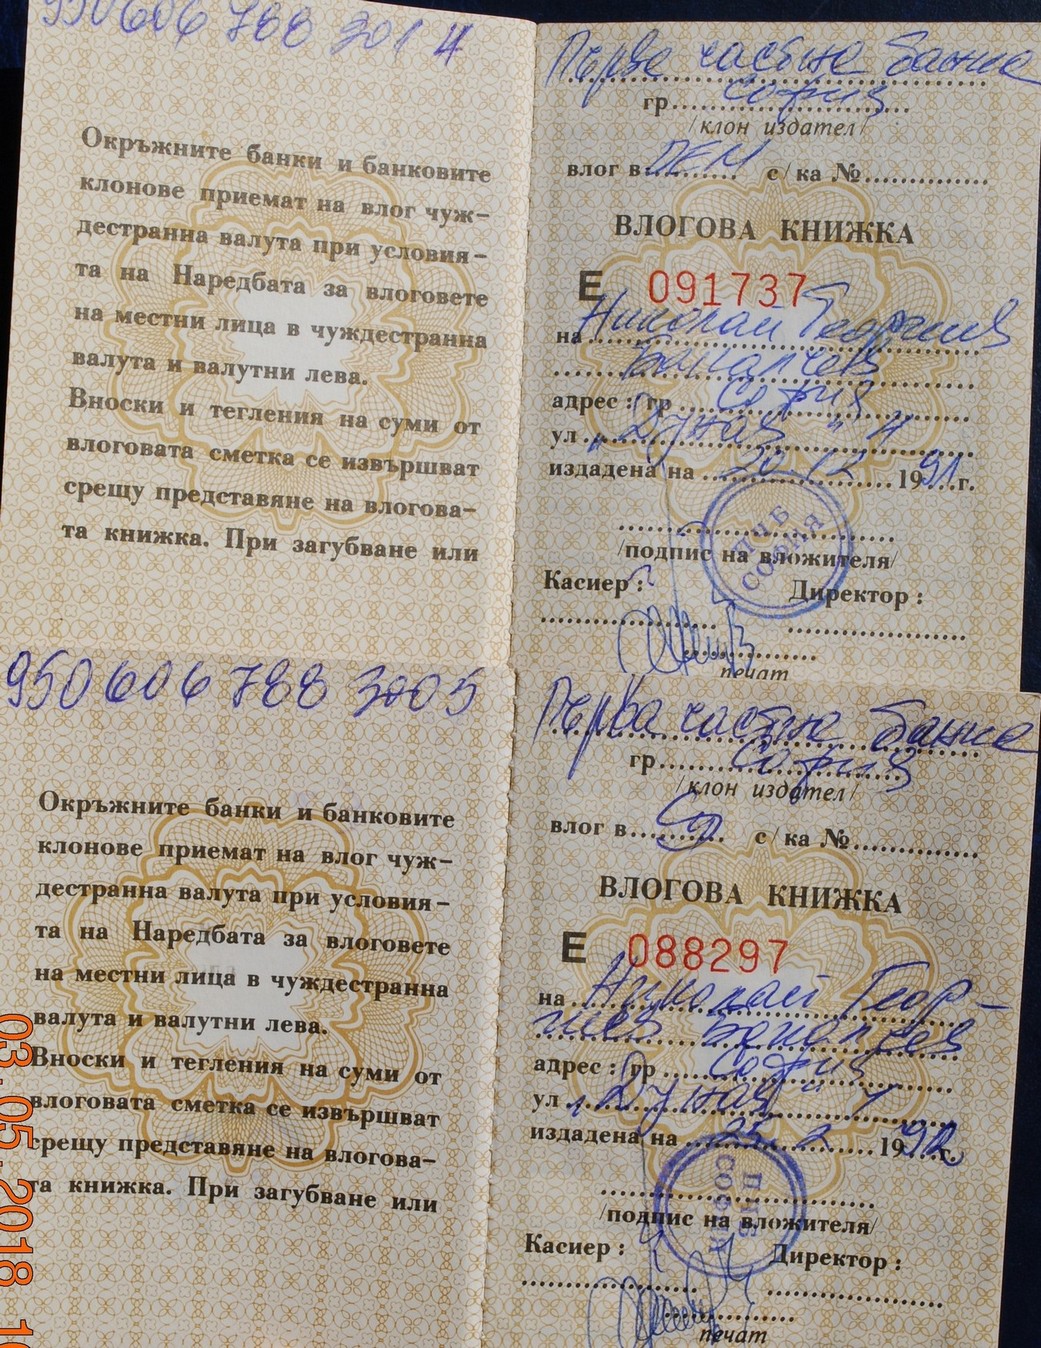 950606 788 301 4
Окръжните банки и банковите
клонове приемат на влог чуж-
дестранна валута при условия-
та на Наредбата за влоговете
на местни лица в чуждестранна
валута и валутни лева.
Вноски и тегления на суми от
влоговата сметка се извършват
срещу представяне на влогова-
та книжка. При загубване или
Първа частна банка
гр. София
/клон издател/
влог в DEM с/ка №
ВЛОГОВА КНИЖКА
Е 091737
на Николай Георгиев
Баналчев
адрес: гр София
ул. "Дунав"
издадена на 20.12 1991 г.
ПЧБ
СОФИЯ
/подпис на вложителя/
Касиер: Директор:
печат
950606 788 3005
Окръжните банки и банковите
клонове приемат на влог чуж-
дестранна валута при условия-
та на Наредбата за влоговете
на местни лица в чуждестранна
валута и валутни лева.
Вноски и тегления на суми от
влоговата сметка се извършват
срещу представяне на влогова-
та книжка. При загубване или
Първа частна банка
гр. София
/клон издател/
влог в с/ка №
ВЛОГОВА КНИЖКА
Е 088297
на Николай Геор-
гиев Баналчев
адрес: гр София
ул. "Дунав"
издадена на 25.2 1992 г.
ПЧБ
СОФИЯ
/подпис на вложителя/
Касиер: Директор:
печат
03.05.2018